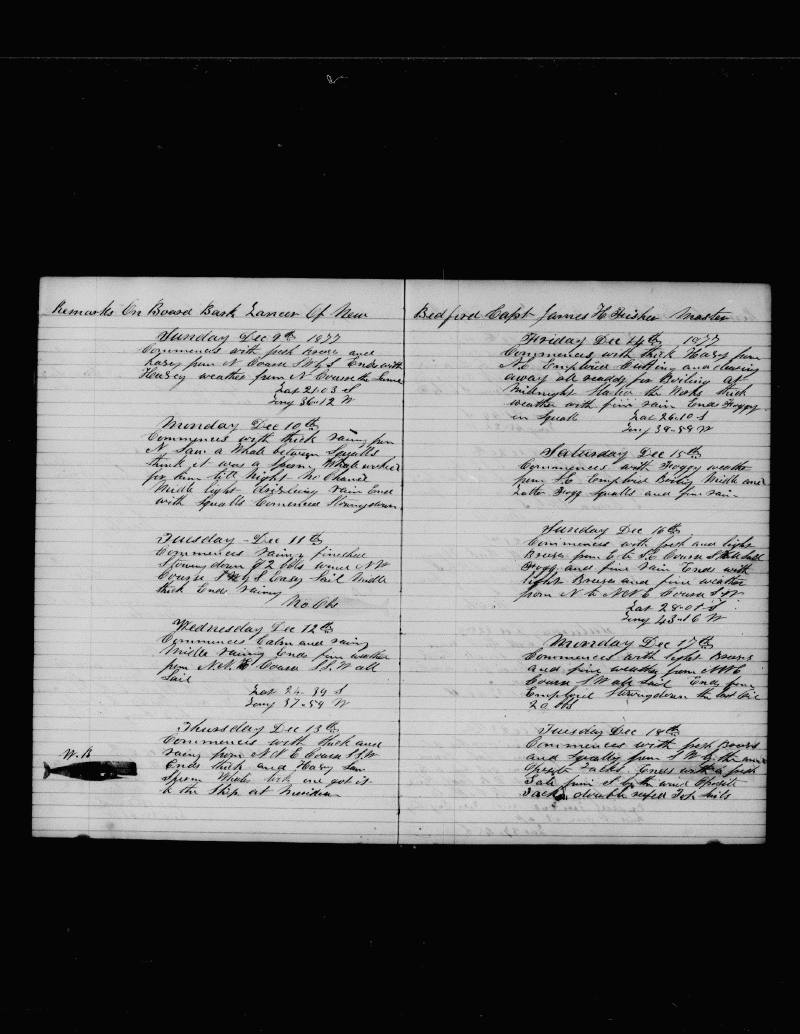 Remarks On Board Bark Lancer Of New
Sunday Dec 9th 1877
Commences with fresh Breeze and
hazey from N Course W by S Ends with
Hazey weather from N Course the same
Lat 21-03 S
Long 36-12 W
Monday Dec 10th
Commences with thick rainy from
N Saw a Whale between Squalls
think it was a Sperm Whale worked
for him till Night No Chance
Middle light drizling rain End
with Squalls Comenced Stowingdown
Tuesday - Dec 11th
Commences rainy finished
Stowing down 72 bbls wind NW
Course S by S Easy Sail Middle
thick Ends rainy
No Obs
Wednesday Dec 12th
Commences Calm and rainy
Middle rainy Ends fine weather
from N.N. Course S.S.W all
Sail
Lat 24-39 S
Long 37-59 W
Thursday Dec 13th
Commences with thick and
rainy from N & E Course S S W
Ends thick and Hazy Saw
Sperm Whales took one got it
to the Ship at Meridian
W. B
Bedford Capt James H Fisher Master
Friday Dec 14th 1877
Commences with thick Hazy from
N.E Employed Cutting and clearing
away all ready for Boiling at
Midnight Started the Works thick
weather with fine rain Ends Foggy
in Squalls Lat 26-10-S
Long 39-59 W
Saturday Dec 15th
Commences with Foggy weather
from S.E Employed Boiling Middle and
Latter Fogg Squalls and fine rain
Sunday Dec 16th
Commences with fresh and light
Breeze from E to S.E Course
Fogg and fine rain Ends with
light Breeze and fine weather
from N to NNE Course S W
Lat 28-01-S
Long 43-16 W
Monday Dec 17th
Commences with light Breeses
and fine weather from NNE
Course S W all Sail Ends fine
Employed Stowingdown the last Oil
20 bbls
Tuesday Dec 18th
Commences with fresh Breeses
and Squaley from S W by the wind
Opesite Tacks Ends with a fresh
Gale from S by the wind Oposite
Tacks double reefed Top Sails